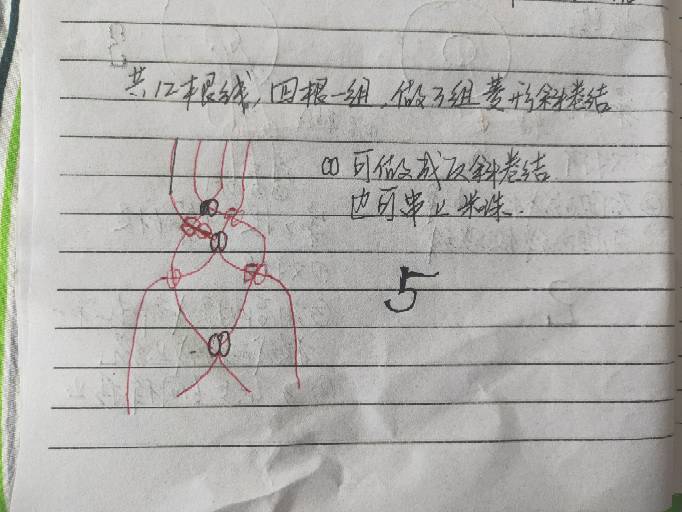 共12根线,四根一组,做3组菱形斜卷结
可做成反斜卷结
也可串上米珠.
5